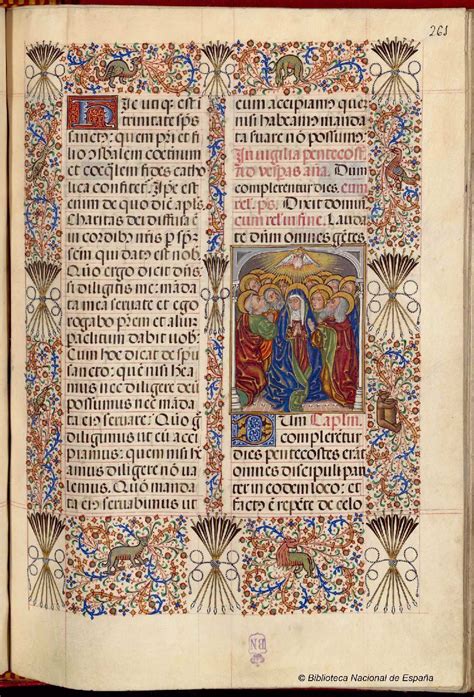 261
Hic unq; est i
trinitate sp̃s
sanct9: quem pri et fi
lio ɔsb̃alem coetinũ
et coeq̃lem fides catho
lica confitet᷑. Ip̃e est
eum de quo dic̃ apl̃s
Charitas dei diffusa ẽ
in cordib9 nr̃is p sp̃m
sem qui dat9 est nob̃
Quõ ergo dicit dñs
si diligitis me: mãda
ta mea seruate et ego
rogabo pr̃em et aliũ
paclitum dabit uob̃
Cum hoc dicat de spũ
sancto: quẽ nisi h̃ea
mus nec diligere deũ
possumus nec mãda
ta ei9 seruare: Quõ
diligimus ut eũ acci
piamus: quem nisi h̃
amus diligere nõ ua
lemus. Quõ mãda
ta ei9 seruabimus ut
eum accipiam9 que
nisi habeam9 mãda
ta suare nõ possum9
In uigilia pentecost̃
ad vesp̃as añ. Dum
complerentur dies. cum
rel. ps. Dixit domin9
cum rel. in fine. Lauda
te dñm omnes gẽtes
Dum Caplm.
complerẽtur
dies pentecostes erãt
omnes discipuli pari
ter in eodem loco: et
fact9 ẽ repẽte de celo
BN
© Biblioteca Nacional de España